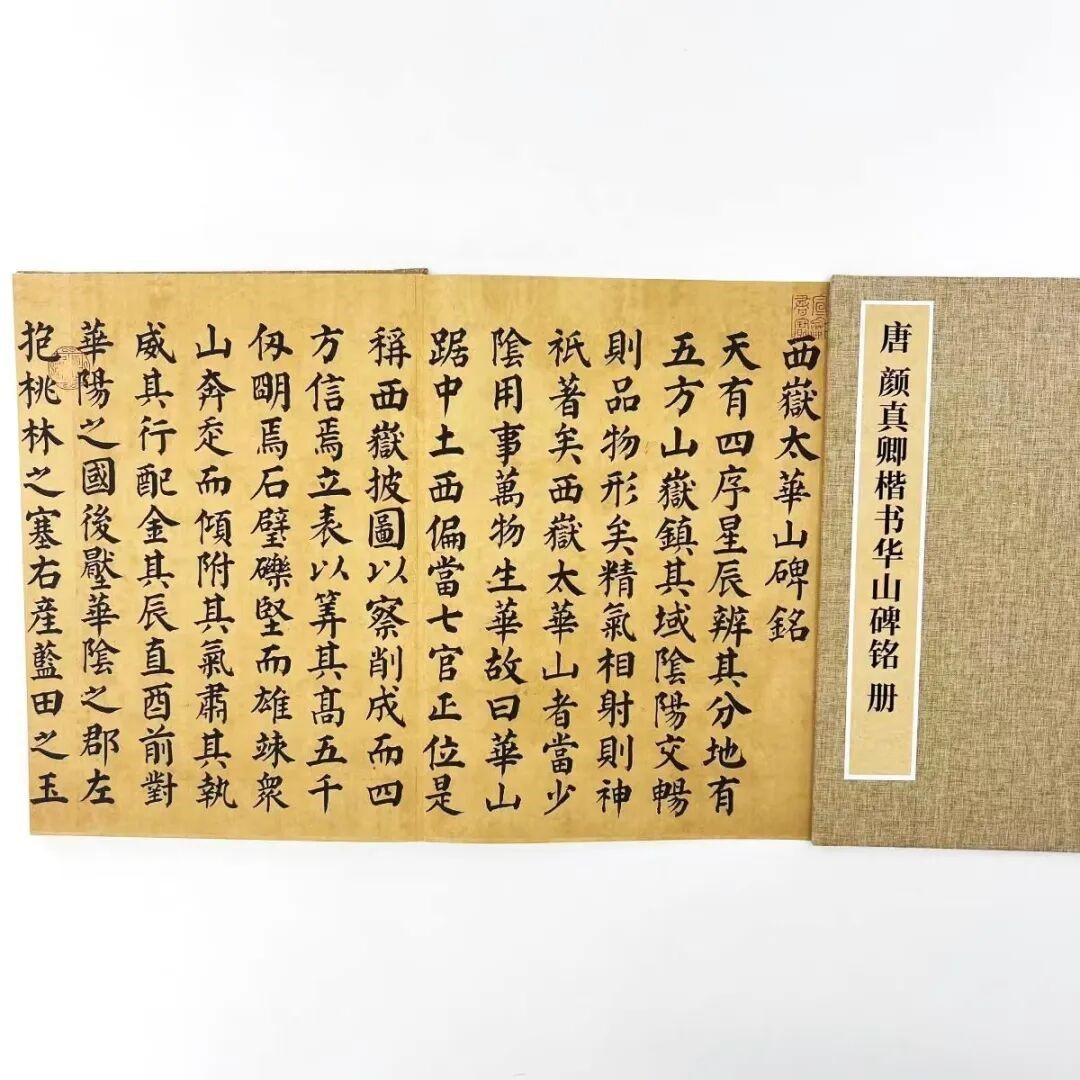 唐 颜真卿楷书华山碑铭 册
西嶽太華山碑銘
天有四序星辰辨其分地有
五方山嶽鎮其域陰陽交暢
則品物形矣精氣相射則神
祇著矣西嶽太華山者當少
陰用事萬物生華故曰華山
踞中土西偏當七官正位是
稱西嶽披圖以察削成而四
方信焉立表以筭其高五千
仭明焉石壁礫堅而雄竦衆
山奔走而傾附其氣肅其執
威其行配金其辰直酉前對
華陽之國後壓華陰之郡左
抱桃林之塞右産藍田之玉